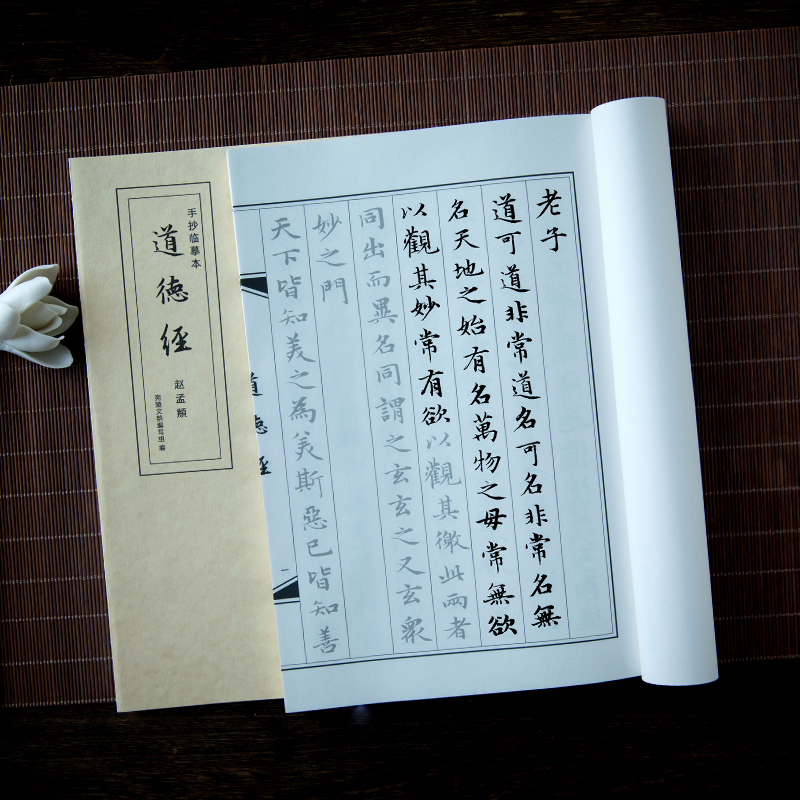 老子
道可道非常道名可名非常名無
名天地之始有名萬物之母常無欲
以觀其妙常有欲以觀其徼此兩者
同出而異名同謂之玄玄之又玄衆
妙之門
天下皆知美之為美斯惡已皆知善
道德經
一
手抄临摹本
道德經
赵孟頫
编写组 编